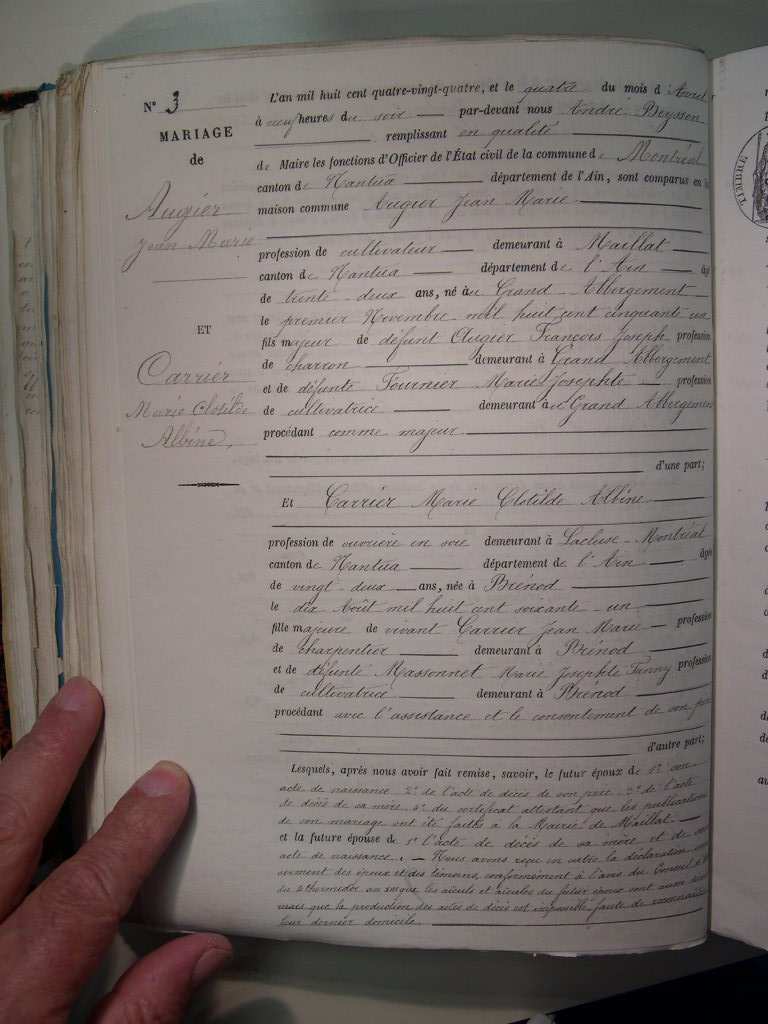 N° 3
MARIAGE
de
Augier
Jean Marie
ET
Carrier
Marie Clotilde
Albine,
L'an mil huit cent quatre-vingt-quatre, et le quatre du mois d'Avril
à neuf heures du soir par-devant nous André Beysson
remplissant en qualité
de Maire les fonctions d'Officier de l'État civil de la commune de Montréal
canton de Nantua département de l'Ain, sont comparus en la
maison commune Augier Jean Marie
profession de cultivateur demeurant à Maillat
canton de Nantua département de l'Ain âgé
de trente-deux ans, né au Grand Abbergement
le premier Novembre mil huit cent cinquante un
fils majeur de défunt Augier François Joseph profession
de charron demeurant à Grand Abbergement
et de défunte Fournier Marie Josephte profession
de cultivatrice demeurant à Grand Abbergement
procédant comme majeur
d'une part;
Et Carrier Marie Clotilde Albine
profession de ouvrière en soie demeurant à Lacluse-Montréal
canton de Nantua département de l'Ain âgée
de vingt-deux ans, née à Brénod
le dix Août mil huit cent soixante-un
fille majeure de vivant Carrier Jean Marie profession
de charpentier demeurant à Brénod
et de défunte Massonnet Marie Josephte Fanny profession
de cultivatrice demeurant à Brénod
procédant avec l'assistance et le consentement de son père
d'autre part;
Lesquels, après nous avoir fait remise, savoir, le futur époux de 1° son
acte de naissance 2° de l'acte de décès de son père 3° de l'acte
de décès de sa mère 4° du certificat attestant que les publications
de son mariage ont été faites à la Mairie de Maillat
et la future épouse de 1° l'acte de décès de sa mère et de son
acte de naissance. Nous avons reçu en outre la déclaration sous
serment des époux et des témoins, conformément à l'avis du Conseil d'
du 4 thermidor an treize les aïeuls et aïeules du futur époux sont aussi
mais que la production des actes de décès est impossible faute de connaître
leur dernier domicile.
TIMBRE